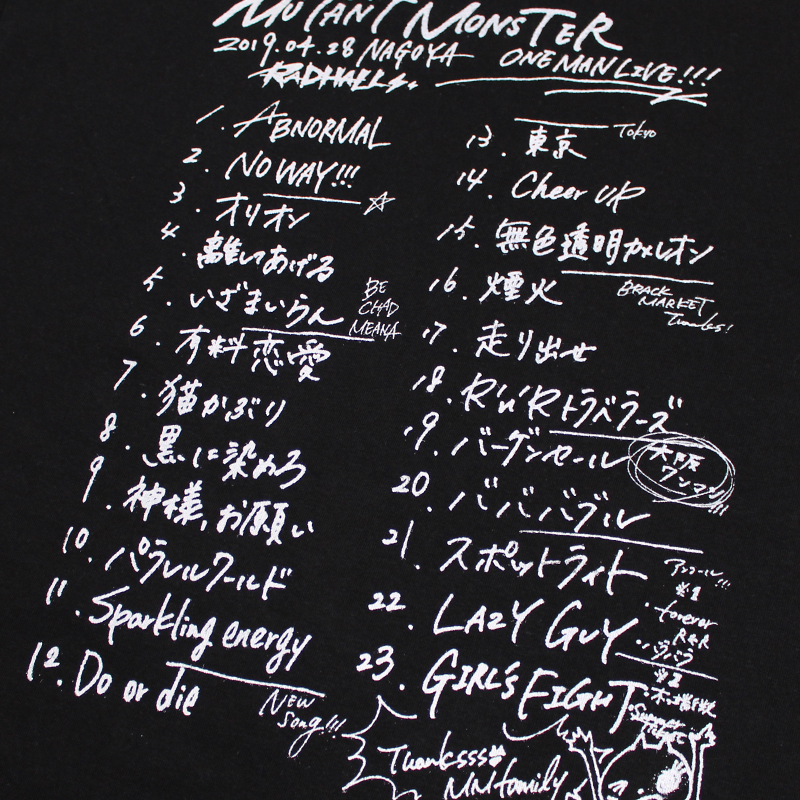 MUTANT MONSTER
2019.04.28 NAGOYA ONE MAN LIVE!!!
RADHALL
1. ABNORMAL
2. NO WAY!!!
3. オリオン ☆
4. 離してあげる
5. いざまいらん
BE
CHAO
MEANA
6. 有料恋愛
7. 猫かぶり
8. 黒に染めろ
9. 神様,お願い
10. パラレルワールド
11. Sparkling energy
12. Do or die
NEW
song!!!
13. 東京 Tokyo
14. Cheer UP
15. 無色透明カメレオン
16. 煙火
BRACK
MARKET
Thanks!
17. 走り出せ
18. R'n'R トラベラーズ
19. バーゲンセール
大阪
ワンマン!!!
20. バババブル
21. スポットライト
アンコール!!!
※1
・forever
R&R
・バラバラ
22. LAZY GUY
23. GIRL'S FIGHT
※2
Thanksss
MM family